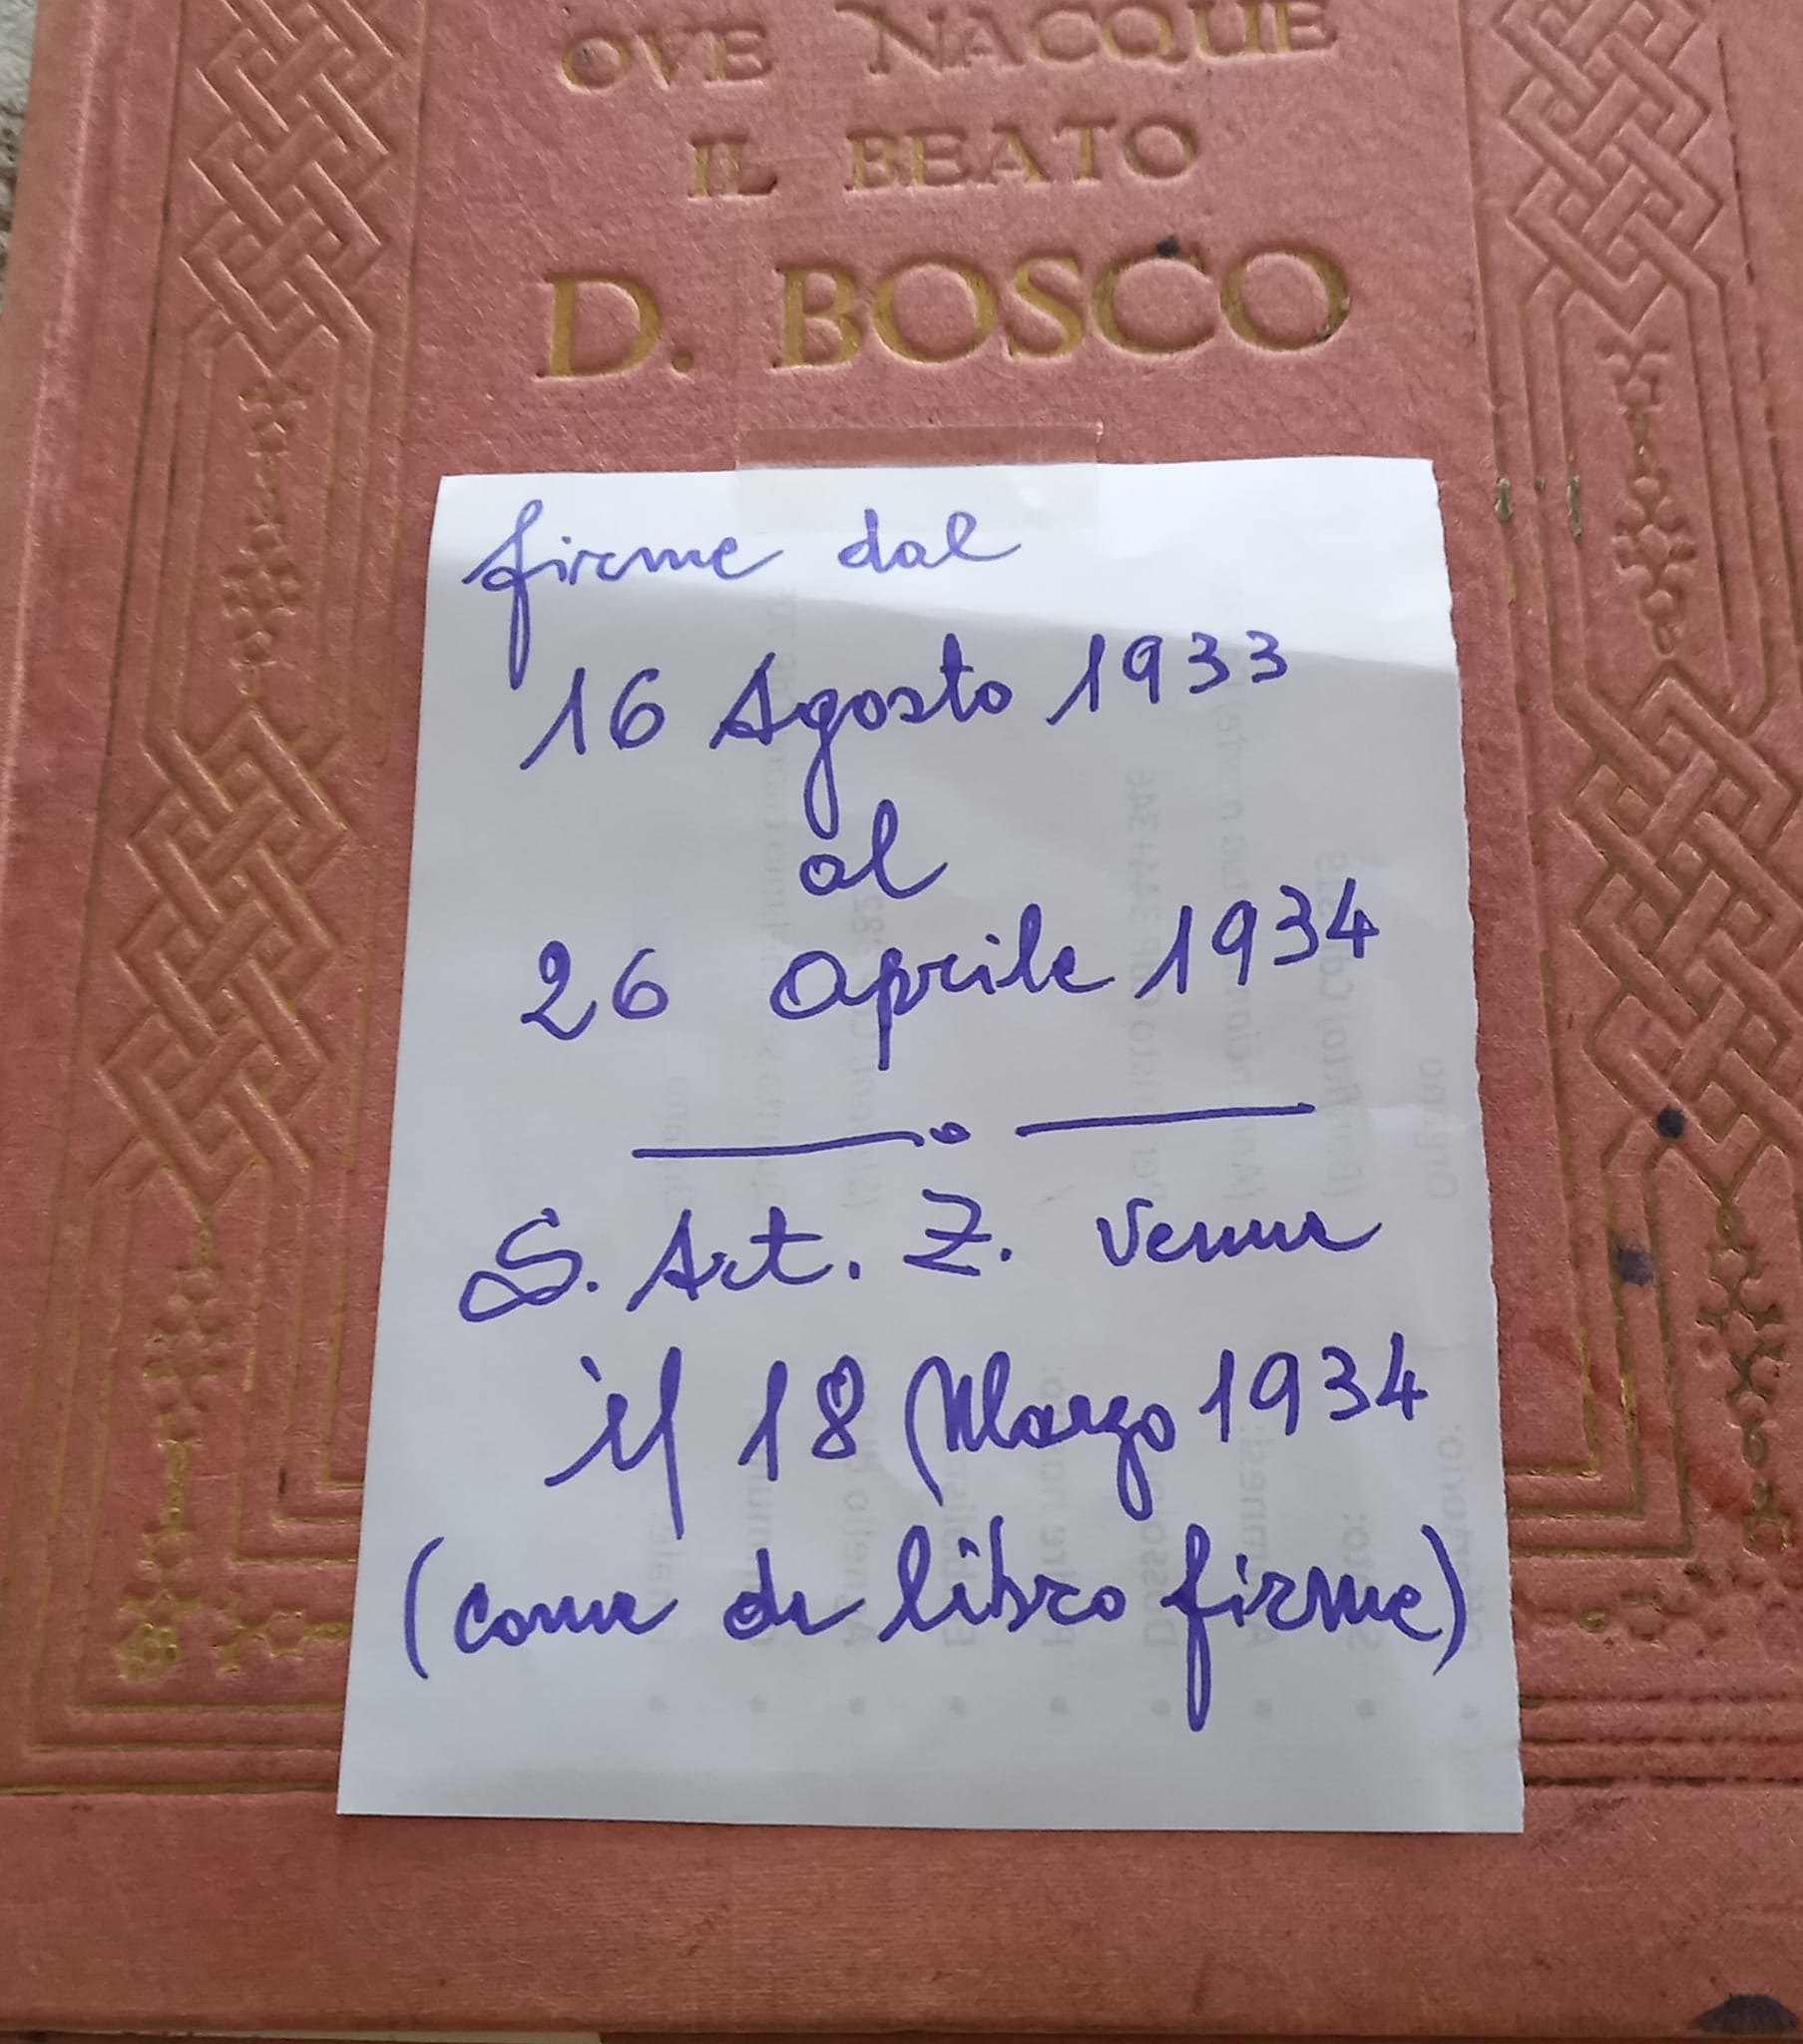 OVE NACQUE
IL BEATO
D. BOSCO
firme dal
16 Agosto 1933
al
26 Aprile 1934
S. Art. Z. venne
il 18 Marzo 1934
(come da libro firme)